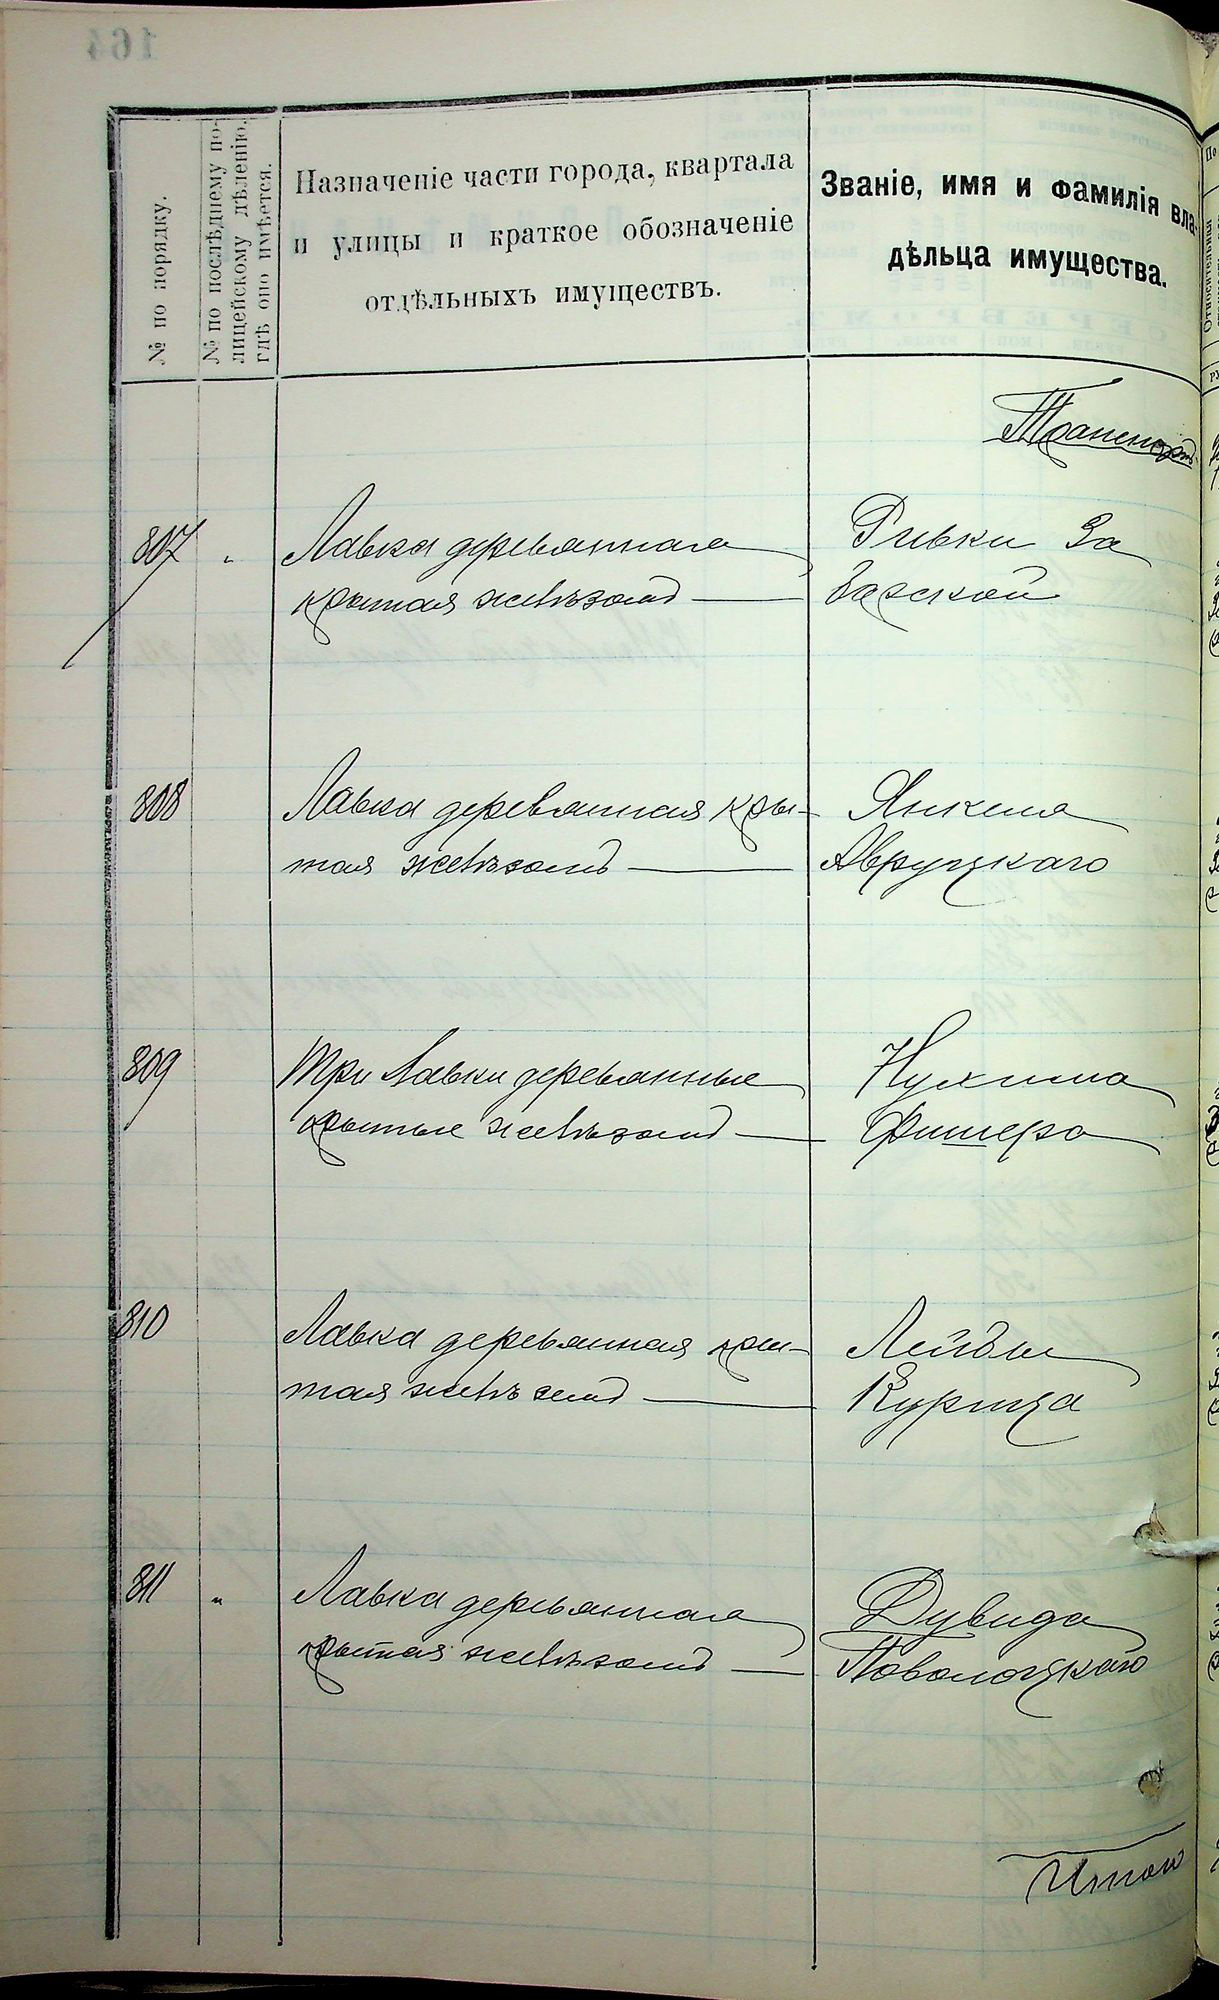 164
№ по порядку.
№ по послѣднему по-
лицейскому дѣленію,
гдѣ оно имѣется.
Назначеніе части города, квартала
и улицы и краткое обозначеніе
отдѣльныхъ имуществъ.
Званіе, имя и фамилія вла-
дѣльца имущества.
Транспортъ
807 " Лавка деревянная Ривки За
крытая желѣзомъ —
808 Лавка деревянная кры- Янкеля
тая желѣзомъ — Авруцкаго
809 Три Лавки деревянные Нухима
крытые желѣзомъ — Фишера
810 Лавка деревянная кры- Лейбы
тая желѣзомъ — Курица
811 " Лавка деревянная Дувида
крытая желѣзомъ — Поволоцкаго
Итого